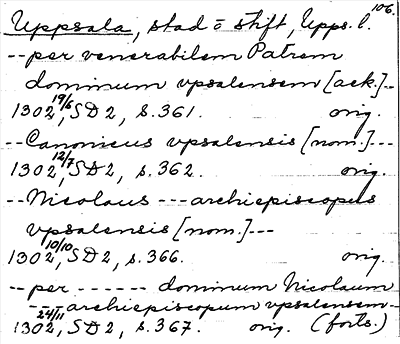 106.
Uppsala, stad o stift, Upps. l.
-- per venerabilem Patrem
dominum vpsalensem [ack.] --
1302 19/6, SD2, s. 361. orig.
-- Canonicus vpsalensis [nom.] ---
1302 12/7, SD2, s. 362. orig.
-- Nicolaus --- archiepiscopus
vpsalensis [nom.] ---
1302 10/10, SD2, s. 366. orig.
-- per ------ dominum Nicolaum
--- archiepiscopum vpsalensem --
1302 24/11, SD2, s. 367. orig. (forts.)